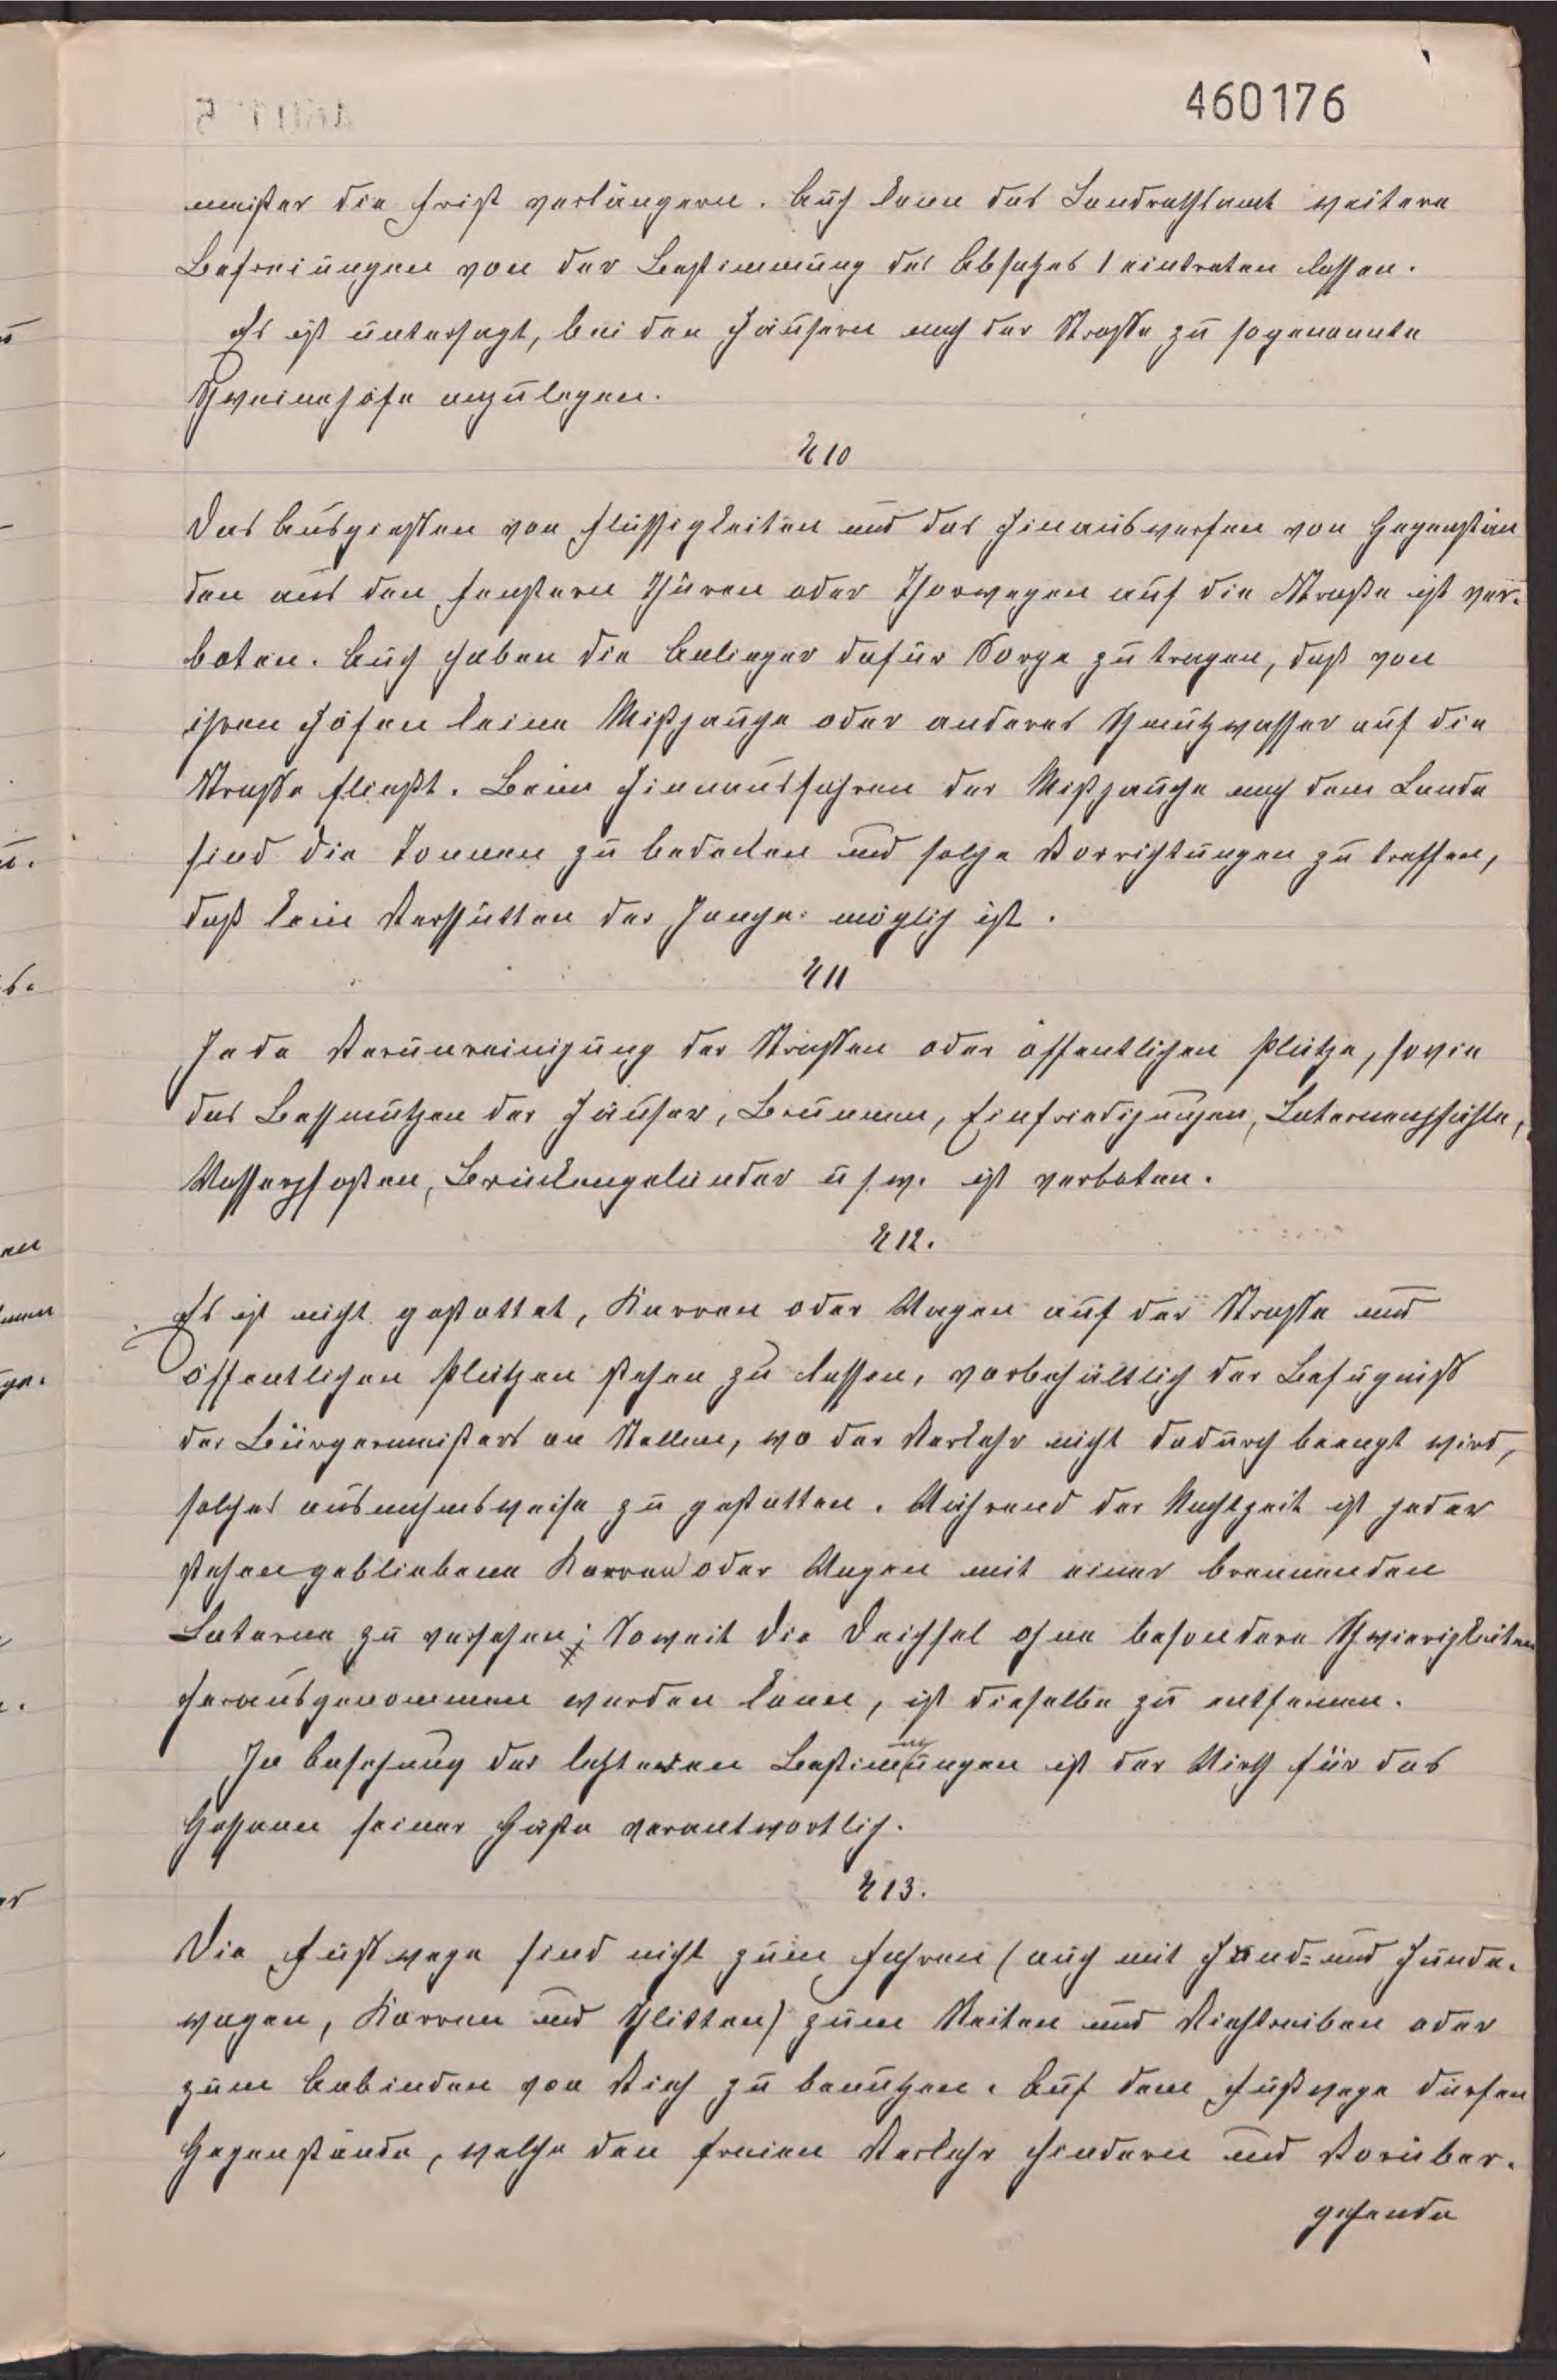 460176
meister die Frist verlängern. Auch kann das Landrathsamt weitere
Befreiungen von der Bestimmung des Absatzes 1 eintreten lassen.
Es ist untersagt, bei den Häusern nach der Strasse zu sogenannte
Schweinehöfe anzulegen.
§ 10
Das Ausgiessen von Flüssigkeiten und das Hinauswerfen von Gegenstän
den aus den Fenstern Thüren oder Thorwegen auf die Straße ist ver-
boten. Auch haben die Anlieger dafür Sorge zu tragen, daß von
ihren Höfen keine Mistjauche oder anderes Schmutzwasser auf die
Strasse fließt. Beim Hinausfahren der Mistjauche nach dem Lande
sind die Tonnen zu bedecken und solche Vorrichtungen zu treffen,
daß kein Verschütten der Jauche möglich ist.
§ 11
Jede Verunreinigung der Strassen oder öffentlichen Plätze, sowie
das Beschmutzen der Häuser, Brunnen, Einfriedigungen, Laternenpfähle,
Wasserpfosten, Brückengeländer u s. w. ist verboten.
§ 12.
Es ist nicht gestattet, Karren oder Wagen auf der Strasse und
öffentlichen Plätzen stehen zu lassen, vorbehältlich der Befugniß
des Bürgermeisters an Stellen, wo der Verkehr nicht dadurch beengt wird,
solches ausnahmsweise zu gestatten. Während der Nachtzeit ist jeder
stehengebliebene Karren oder Wagen mit einer brennenden
Laterne zu versehen; Soweit die Deichsel ohne besondere Schwierigkeiten
herausgenommen werden kann, ist dieselbe zu entfernen.
In Befolgung der letzteren Bestimmungen ist der Wirth für das
Gespann seiner Gäste verantwortlich.
§ 13.
Die Fußwege sind nicht zum Fahren (auch mit Hand- und Hunde-
wagen, Karren und Schlitten) zum Reiten und Viehtreiben oder
zum Anbinden von Vieh zu benutzen. Auf dem Fußwege dürfen
Gegenstände, welche den freien Verkehr hindern und Vorüber-
gehende